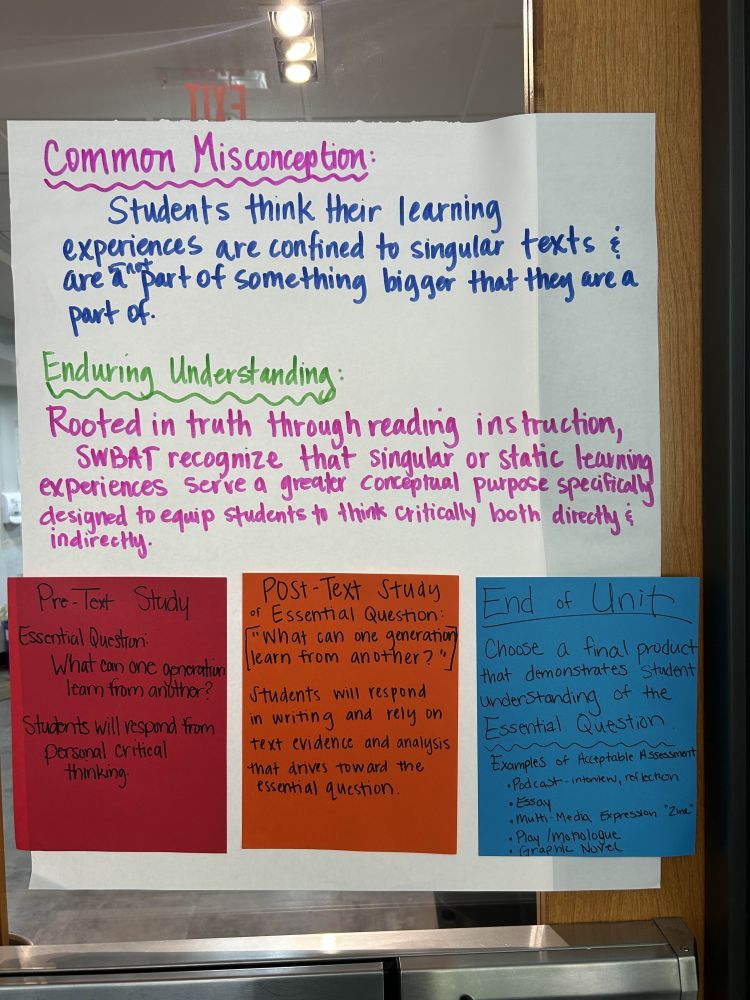 EXIT
Common Misconception:
Students think their learning
experiences are confined to singular texts &
are a not part of something bigger that they are a
part of.
Enduring Understanding:
Rooted in truth through reading instruction,
SWBAT recognize that singular or static learning
experiences serve a greater conceptual purpose specifically
designed to equip students to think critically both directly &
indirectly.
Pre-Text Study
Essential Question:
What can one generation
learn from another?
Students will respond from
personal critical
thinking.
Post-Text Study
of Essential Question:
["What can one generation
learn from another?"]
Students will respond
in writing and rely on
text evidence and analysis
that drives toward the
essential question.
End of Unit
Choose a final product
that demonstrates student
understanding of the
Essential Question.
Examples of Acceptable Assessment
• Podcast-interview, reflection
• Essay
• Multi-Media Expression "Zine"
• Play/monologue
• Graphic Novel